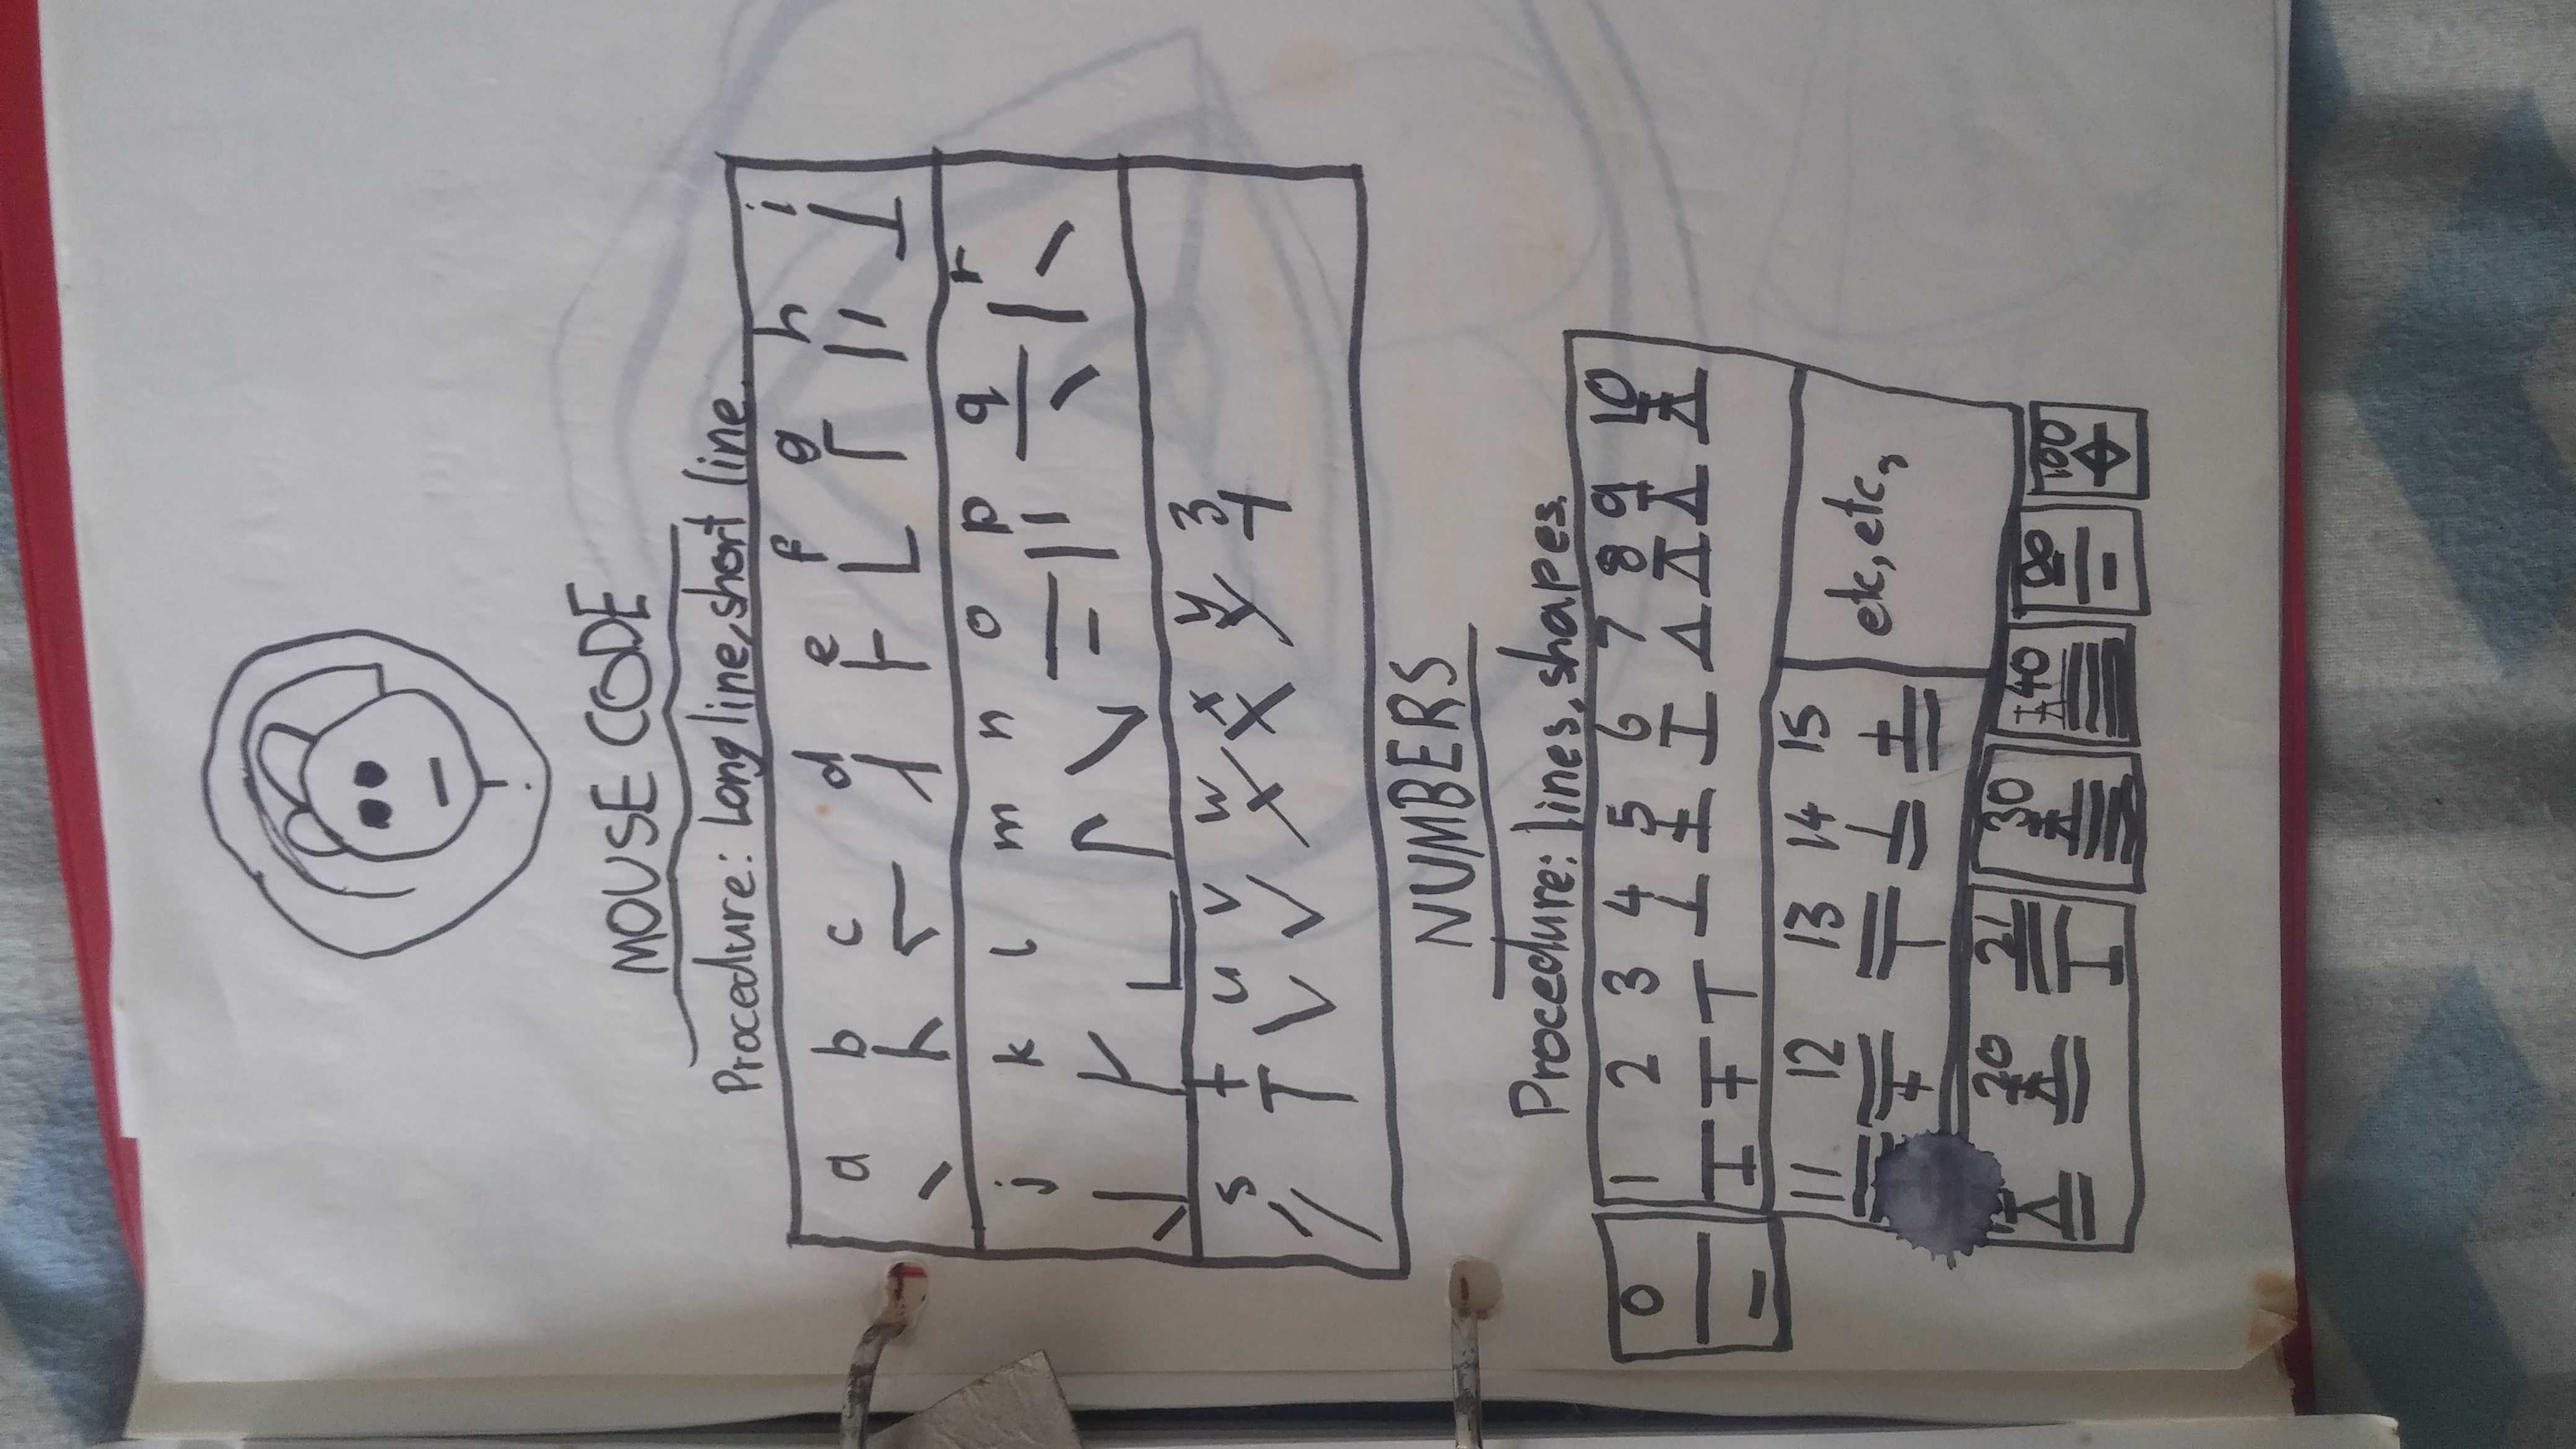 MOUSE CODE
Procedure: Long line, short line.
a b c d e f g h i
j k l m n o p q r
s t u v w x y 3
NUMBERS
Procedure: lines, shapes.
0 1 2 3 4 5 6 7 8 9 10
11 12 13 14 15 etc, etc,
20 21 30 40 100